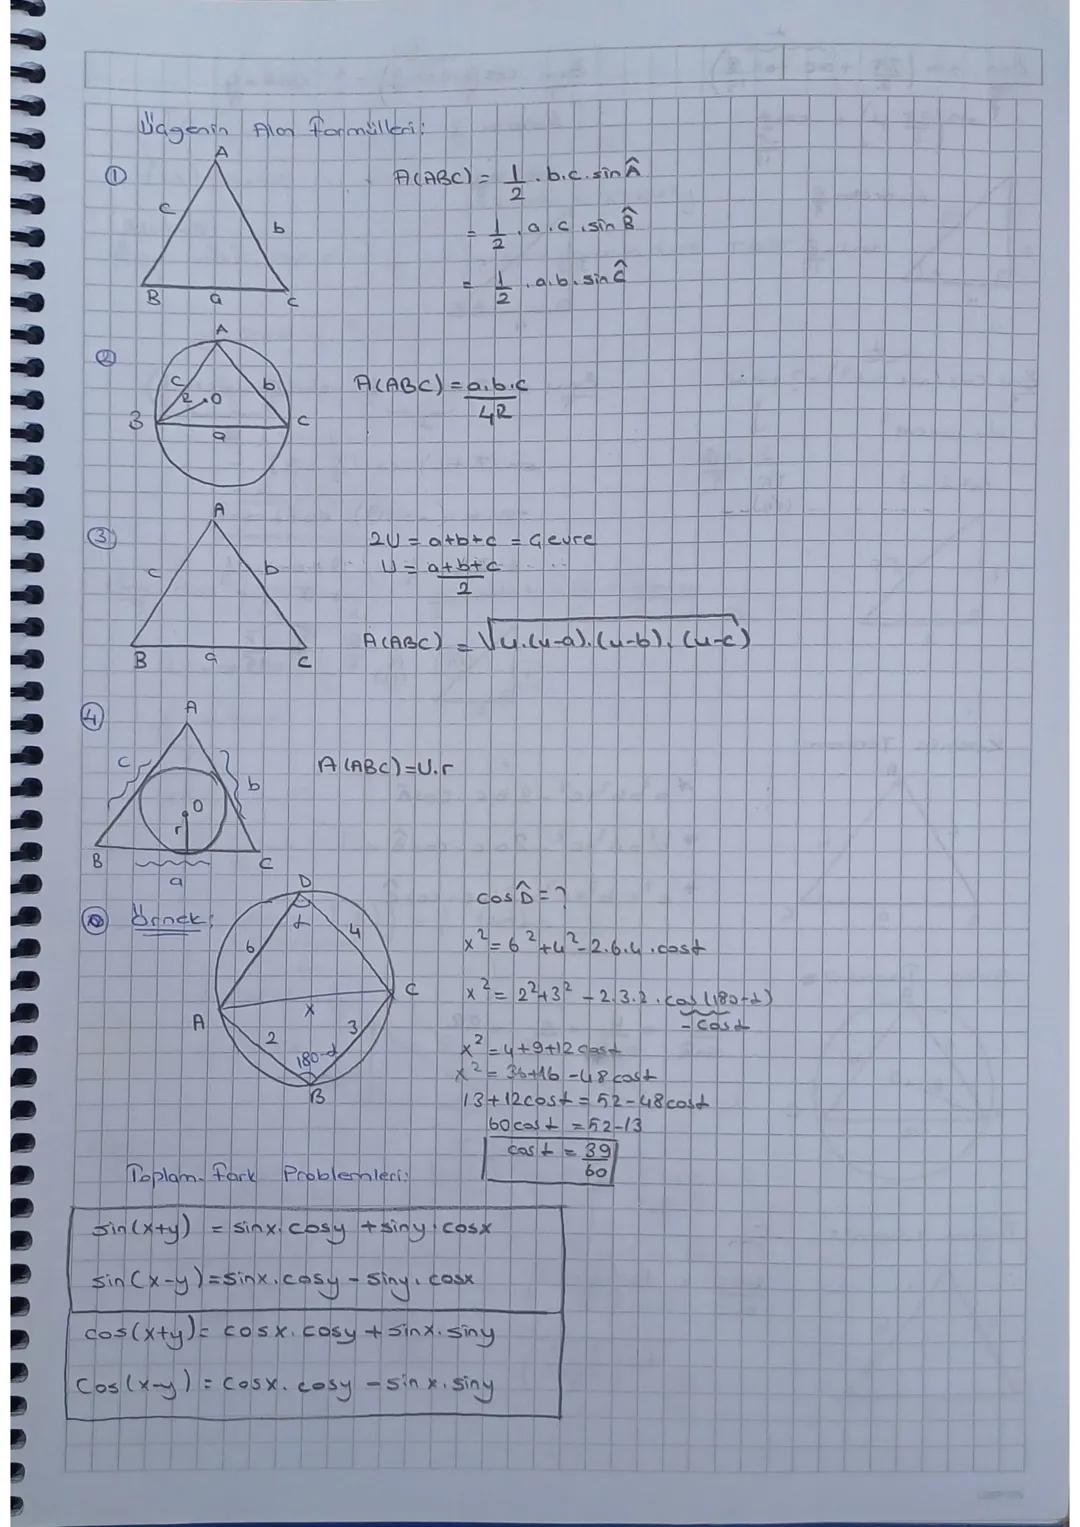 Üçgenin Alan Formülleri:
①
A
c
b
B
a
c
A(ABC) = 1/2 . b.c.sinÂ
= 1/2 . a.c.sin B̂
= 1/2 . a.b.sin Ĉ
②
A
c
b
R
O
B
a
C
A(ABC) = a.b.c/4R
③
A
c
b
B
a
C
2U = a+b+c = Çevre
U = a+b+c/2
A(ABC) = √u.(u-a).(u-b).(u-c)
④
A
c
b
O
r
B
a
C
A(ABC)=U.r
Örnek:
D
α
6
4
A
x
C
2
3
180-α
B
cos D̂ = ?
x² = 6²+4²-2.6.4.cosα
x² = 2²+3² - 2.3.2.cos(180-α)
-cosα
x² = 4+9+12cosα
x² = 36+16-48cosα
13+12cosα = 52-48cosα
60cosα = 52-13
cosα = 39/60
Toplam-Fark Problemleri:
sin(x+y) = sinx.cosy + siny.cosx
sin(x-y) = sinx.cosy - siny.cosx
cos(x+y) = cosx.cosy + sinx.siny
cos(x-y) = cosx.cosy - sinx.siny